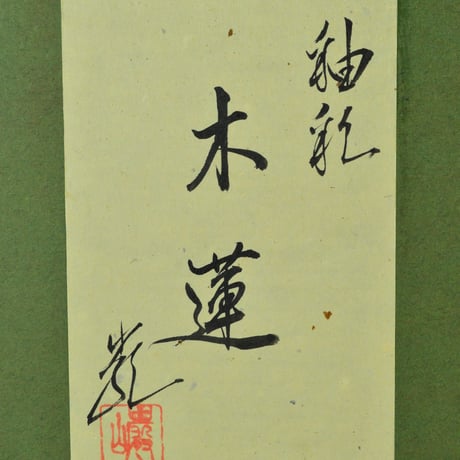 釉彩
木蓮